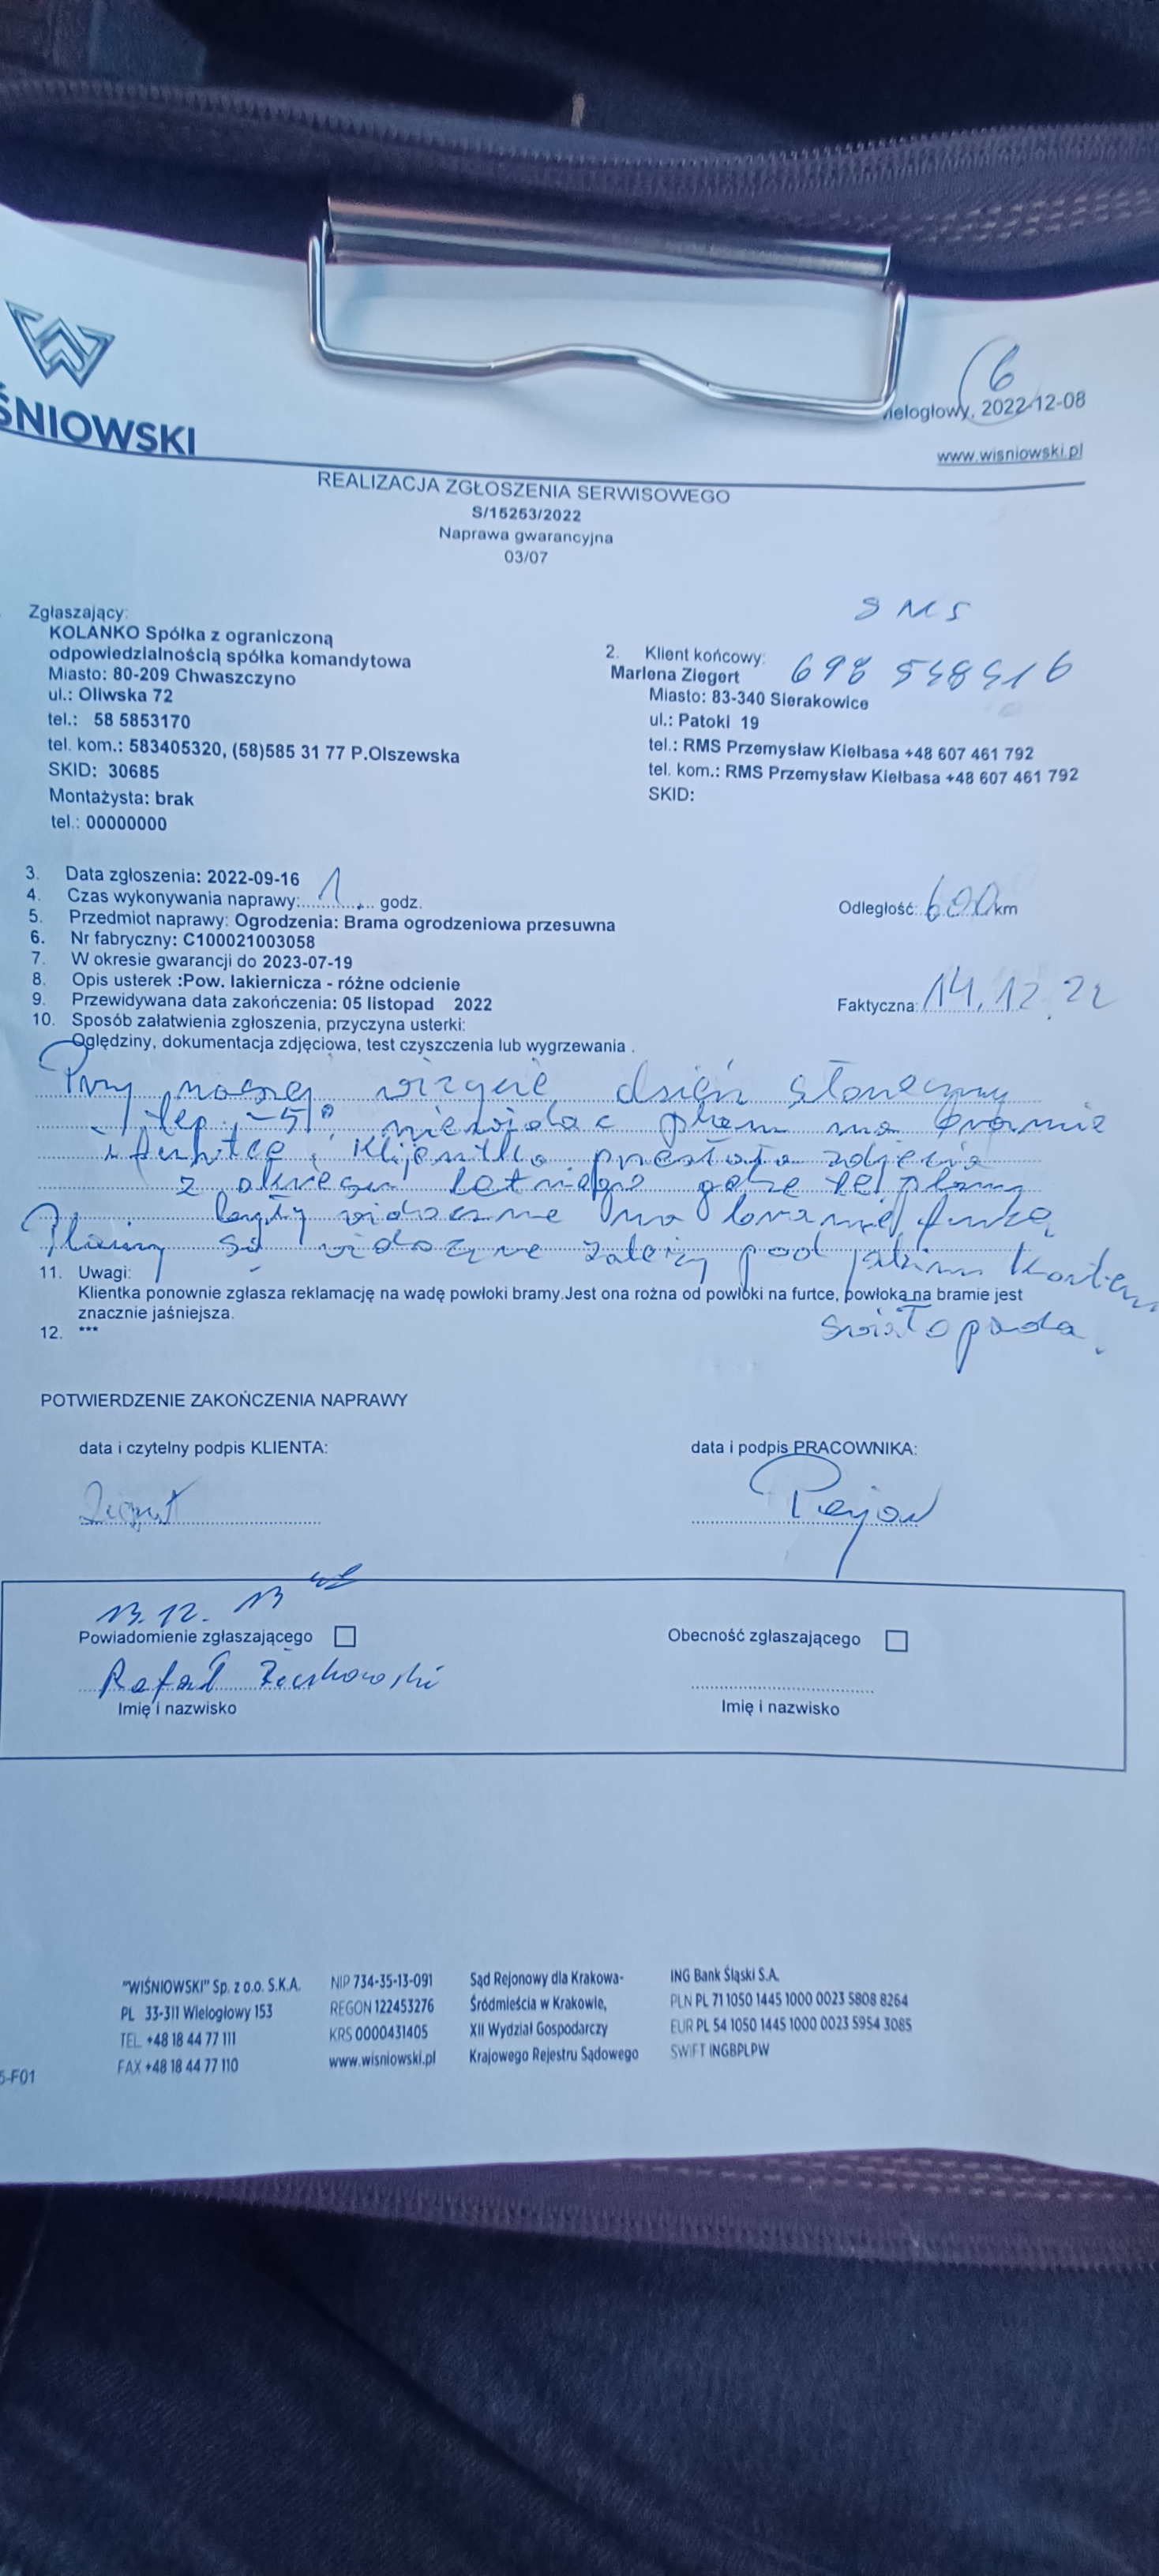 ŚNIOWSKI
6
ielogłowy, 2022-12-08
www.wisniowski.pl
REALIZACJA ZGŁOSZENIA SERWISOWEGO
S/15253/2022
Naprawa gwarancyjna
03/07
Zgłaszający:
KOLANKO Spółka z ograniczoną
odpowiedzialnością spółka komandytowa
Miasto: 80-209 Chwaszczyno
ul.: Oliwska 72
tel.: 58 5853170
tel. kom.: 583405320, (58)585 31 77 P.Olszewska
SKID: 30685
Montażysta: brak
tel.: 00000000
SMS
2. Klient końcowy: 698 548 516
Marlena Ziegert
Miasto: 83-340 Sierakowice
ul.: Patoki 19
tel.: RMS Przemysław Kiełbasa +48 607 461 792
tel. kom.: RMS Przemysław Kiełbasa +48 607 461 792
SKID:
3. Data zgłoszenia: 2022-09-16
4. Czas wykonywania naprawy: 1 godz.
Odległość: 600 km
5. Przedmiot naprawy: Ogrodzenia: Brama ogrodzeniowa przesuwna
6. Nr fabryczny: C100021003058
7. W okresie gwarancji do 2023-07-19
8. Opis usterek :Pow. lakiernicza - różne odcienie
9. Przewidywana data zakończenia: 05 listopad 2022
Faktyczna: 14.12.22
10. Sposób załatwienia zgłoszenia, przyczyna usterki:
Oględziny, dokumentacja zdjęciowa, test czyszczenia lub wygrzewania .
Przy naszej wizycie dzień słoneczny
tep. -5° niewidac plam na bramie
i furtce. Klijentka przesłała zdjęcia
z okresu letniego gdze te plamy
były widoczne na bramie/furtce
Plamy są widoczne zależy pod jakim kontem
światło pada.
11. Uwagi:
Klientka ponownie zgłasza reklamację na wadę powłoki bramy.Jest ona rożna od powłoki na furtce, powłoka na bramie jest
znacznie jaśniejsza.
12. ***
POTWIERDZENIE ZAKOŃCZENIA NAPRAWY
data i czytelny podpis KLIENTA:
data i podpis PRACOWNIKA:
13.12. 13
Powiadomienie zgłaszającego
Obecność zgłaszającego
Rafał
Imię i nazwisko
Imię i nazwisko
"WIŚNIOWSKI" Sp. z o.o. S.K.A.
PL 33-311 Wielogłowy 153
TEL. +48 18 44 77 111
FAX +48 18 44 77 110
NIP 734-35-13-091
REGON 122453276
KRS 0000431405
www.wisniowski.pl
Sąd Rejonowy dla Krakowa-
Śródmieścia w Krakowie,
XII Wydział Gospodarczy
Krajowego Rejestru Sądowego
ING Bank Śląski S.A.
PLN PL 71 1050 1445 1000 0023 5808 8264
EUR PL 54 1050 1445 1000 0023 5954 3085
SWIFT INGBPLPW
5-F01